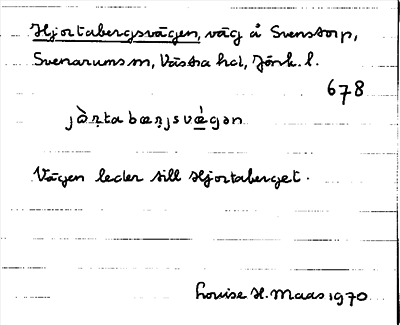 Hjortabergsvägen, väg å Svenstorp,
Svenarums sn, Västra hd, Jönk. l.
678
Vägen leder till Hjortaberget.
Louise H. Maas 1970